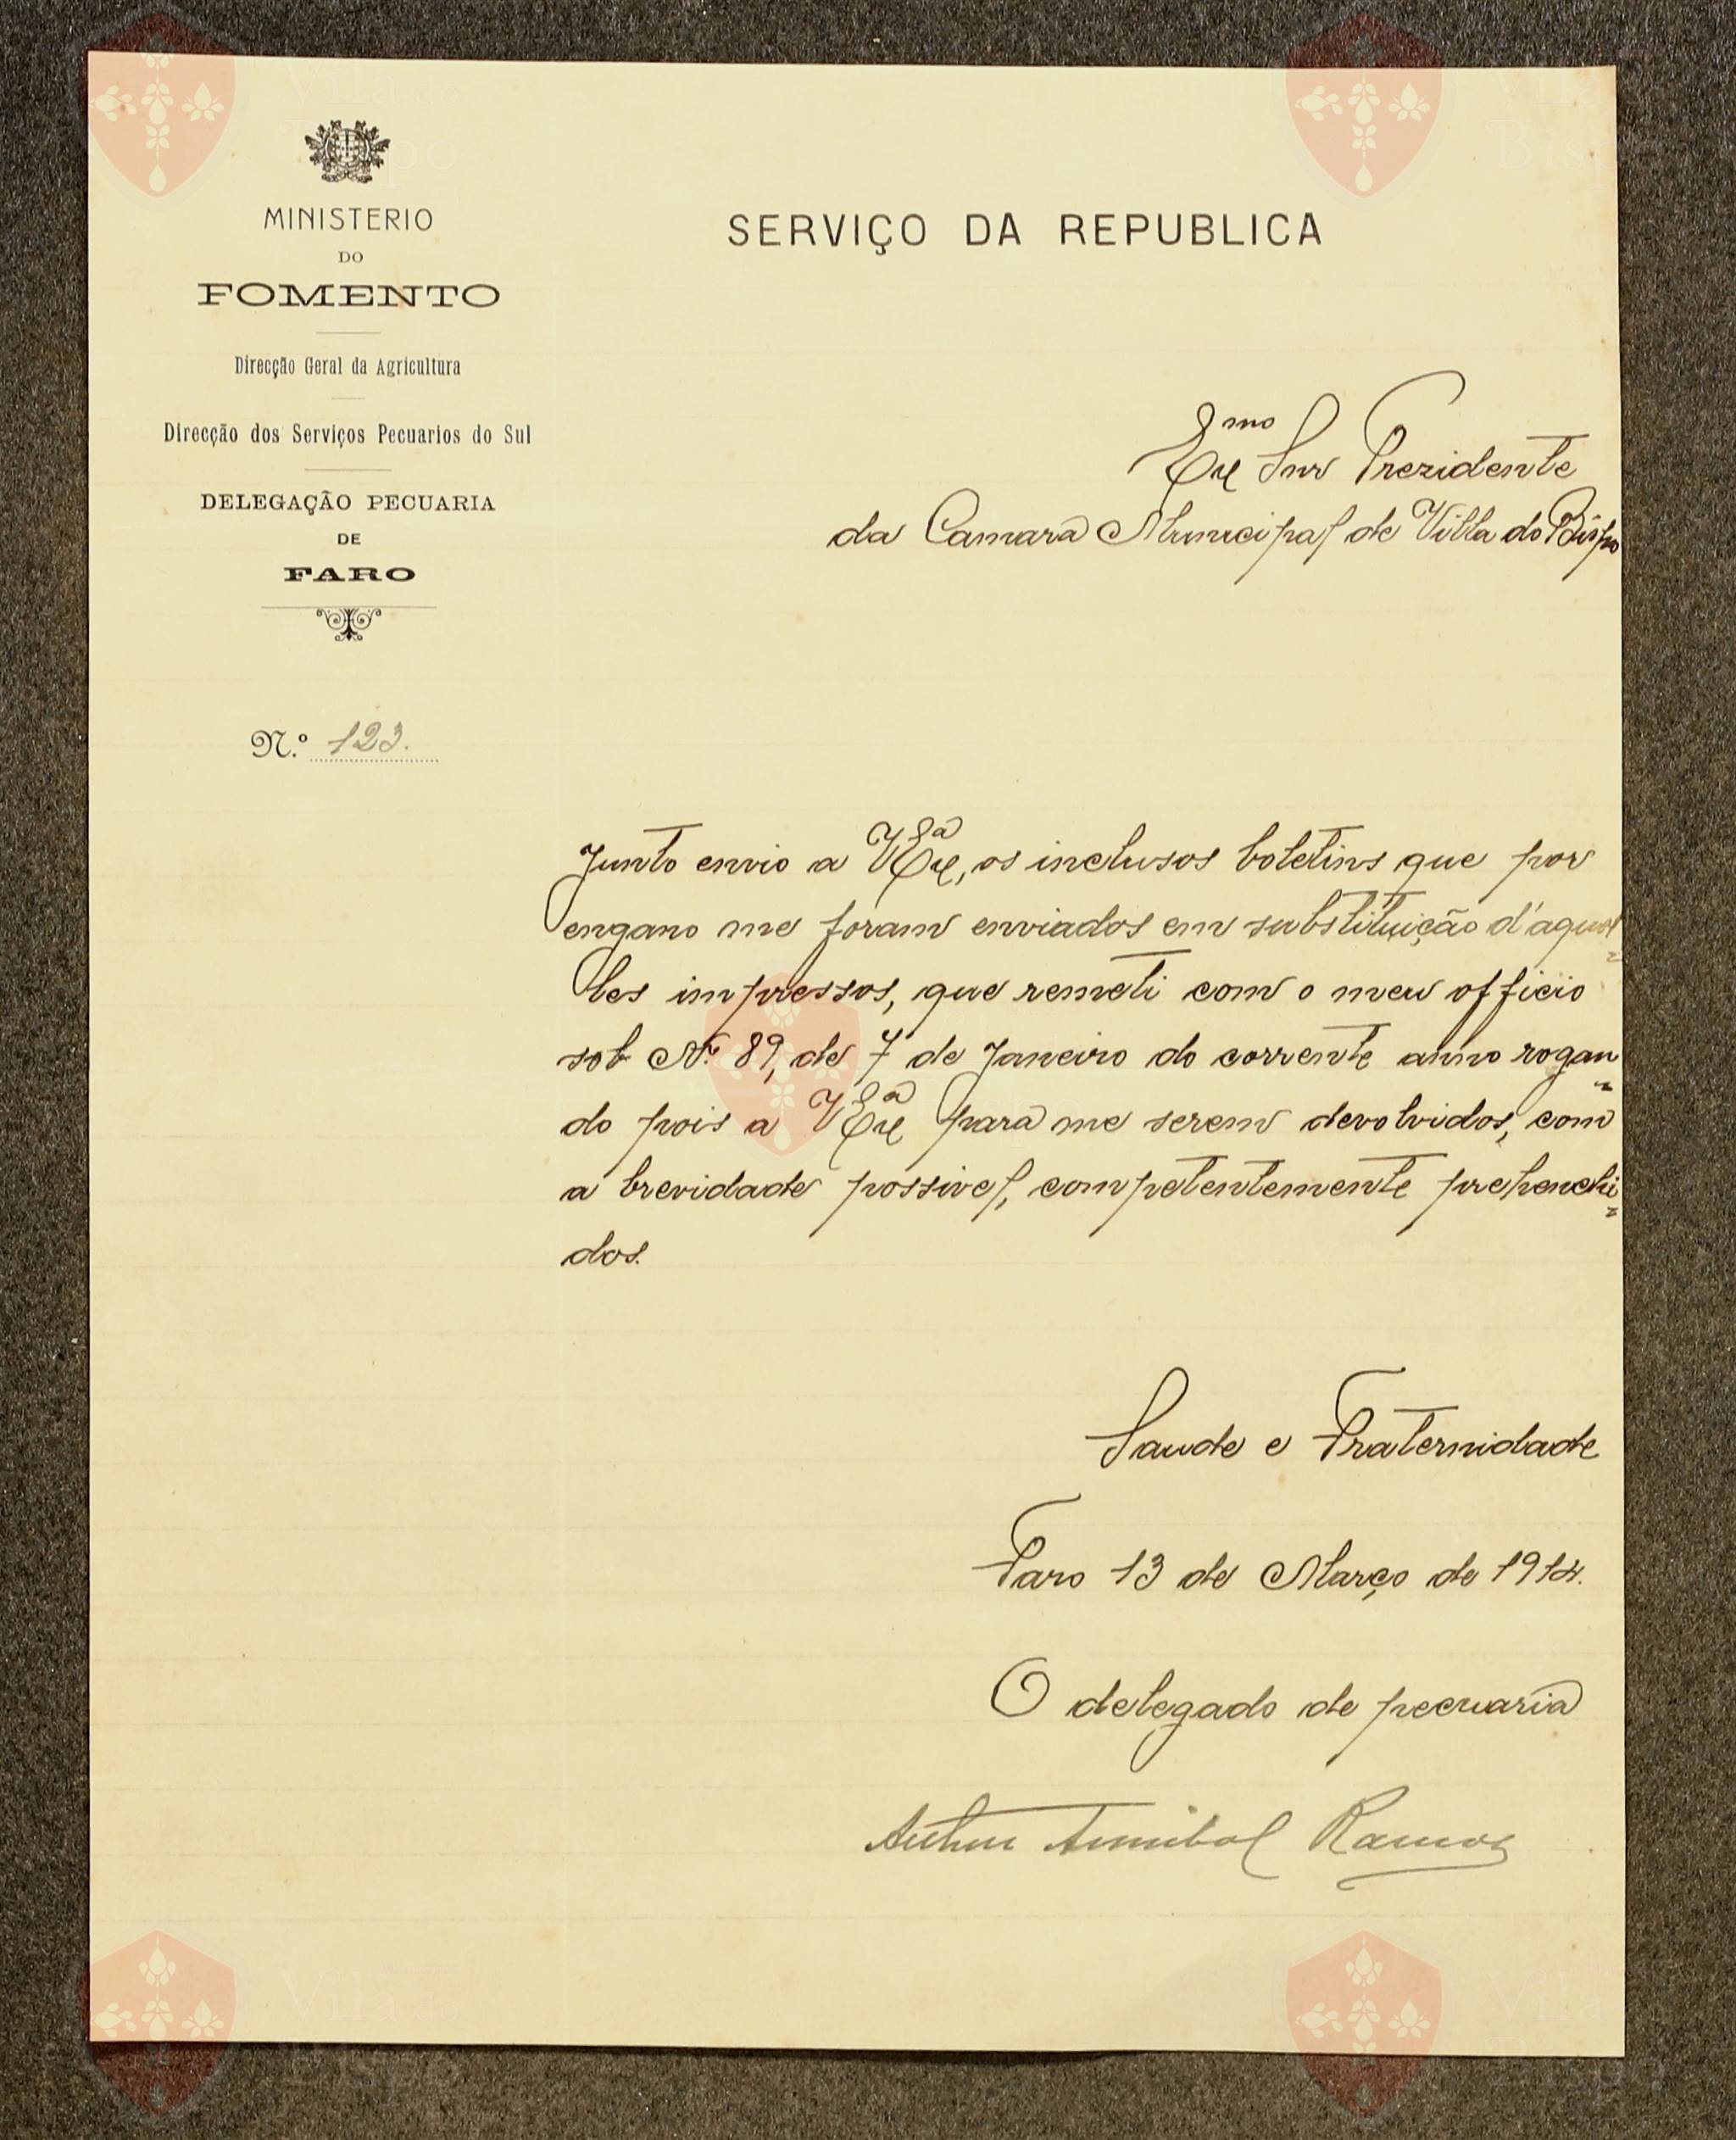 MINISTERIO
DO
FOMENTO
Direcção Geral da Agricultura
Direcção dos Serviços Pecuarios do Sul
DELEGAÇÃO PECUARIA
DE
FARO
N.º 123.
SERVIÇO DA REPUBLICA
Exmo Snr Prezidente
da Camara Municipal de Villa do Bispo
Junto envio a VExª, os inclusos boletins que por
engano me foram enviados em substituição d'aquel
les impressos, que remeti com o meu officio
sob Nº 89, de 7 de Janeiro do corrente anno rogan
do pois a VExª para me serem devolvidos, com
a brevidade possivel, competentemente prehenchi
dos.
Saude e Fraternidade
Faro 13 de Março de 1914.
O delegado de pecuaria
Arthur Annibal Ramos